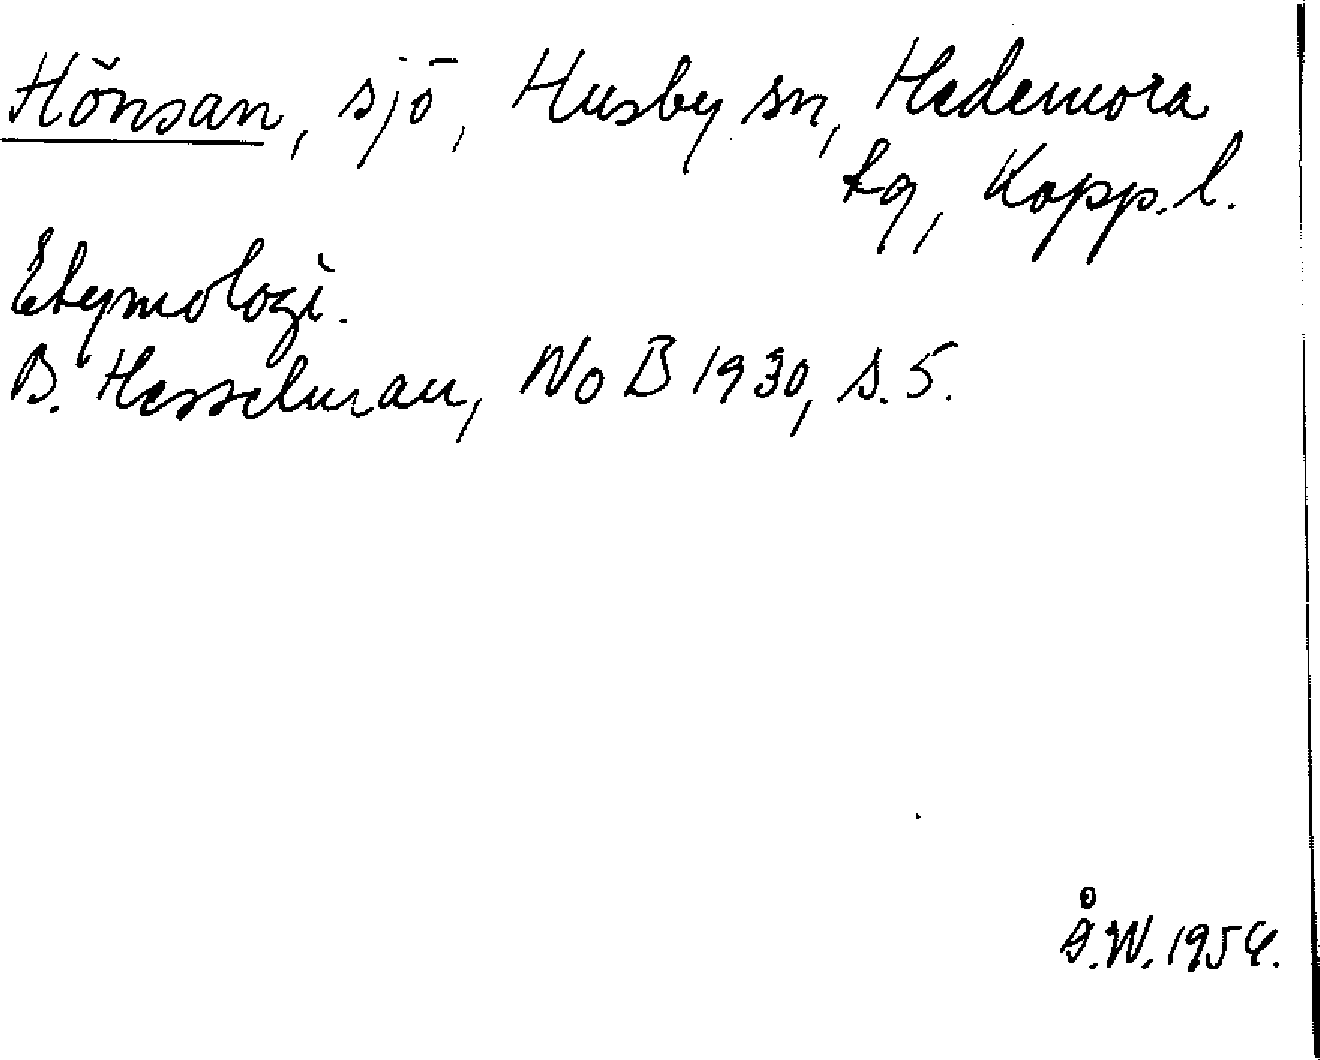 Hönsan, sjö, Husby sn, Hedemora
tg, Kopp. l.
Etymologi.
B. Hesselman, NoB 1930, s. 5.
Å.W. 1954.